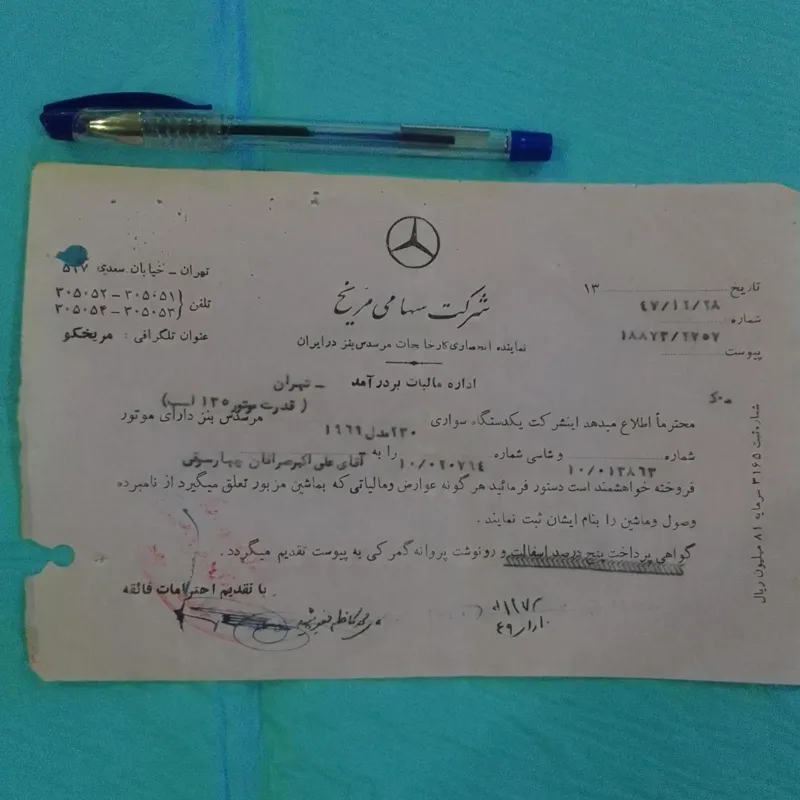 شرکت سهامی مریخ
نماینده انحصاری کارخانجات مرسدس بنز در ایران
تهران – خیابان سعدی ۵۲۷
تلفن { ۳۰۵۰۵۱ – ۳۰۵۰۵۲
۳۰۵۰۵۳ – ۳۰۵۰۵۴
عنوان تلگرافی : مریخکو
تاریخ ۱۳
۴۷/۱۲/۲۸
شماره
۱۸۸۷۳/۲۷۵۷
پیوست
اداره مالیات بر درآمد – تهران
( قدرت موتور ۱۳۵ اسب)
محترماً اطلاع میدهد اینشرکت یکدستگاه سواری ۲۳۰ مدل ۱۹۶۹ مرسدس بنز دارای موتور
شماره ۱۰/۰۱۲۸۶۳ و شاسی شماره ۱۰/۰۲۰۷۶۴ را به آقای علی اکبر صرافان چهارسوقی
فروخته خواهشمند است دستور فرمائید هر گونه عوارض ومالیاتی که بماشین مزبور تعلق میگیرد از نامبرده
وصول وماشین را بنام ایشان ثبت نمایند .
گواهی پرداخت پنج درصد اسفالت و رونوشت پروانه گمرکی به پیوست تقدیم میگردد .
با تقدیم احترامات فائقه
شماره ثبت ۳۱۶۵ سرمایه ۸۱ میلیون ریال